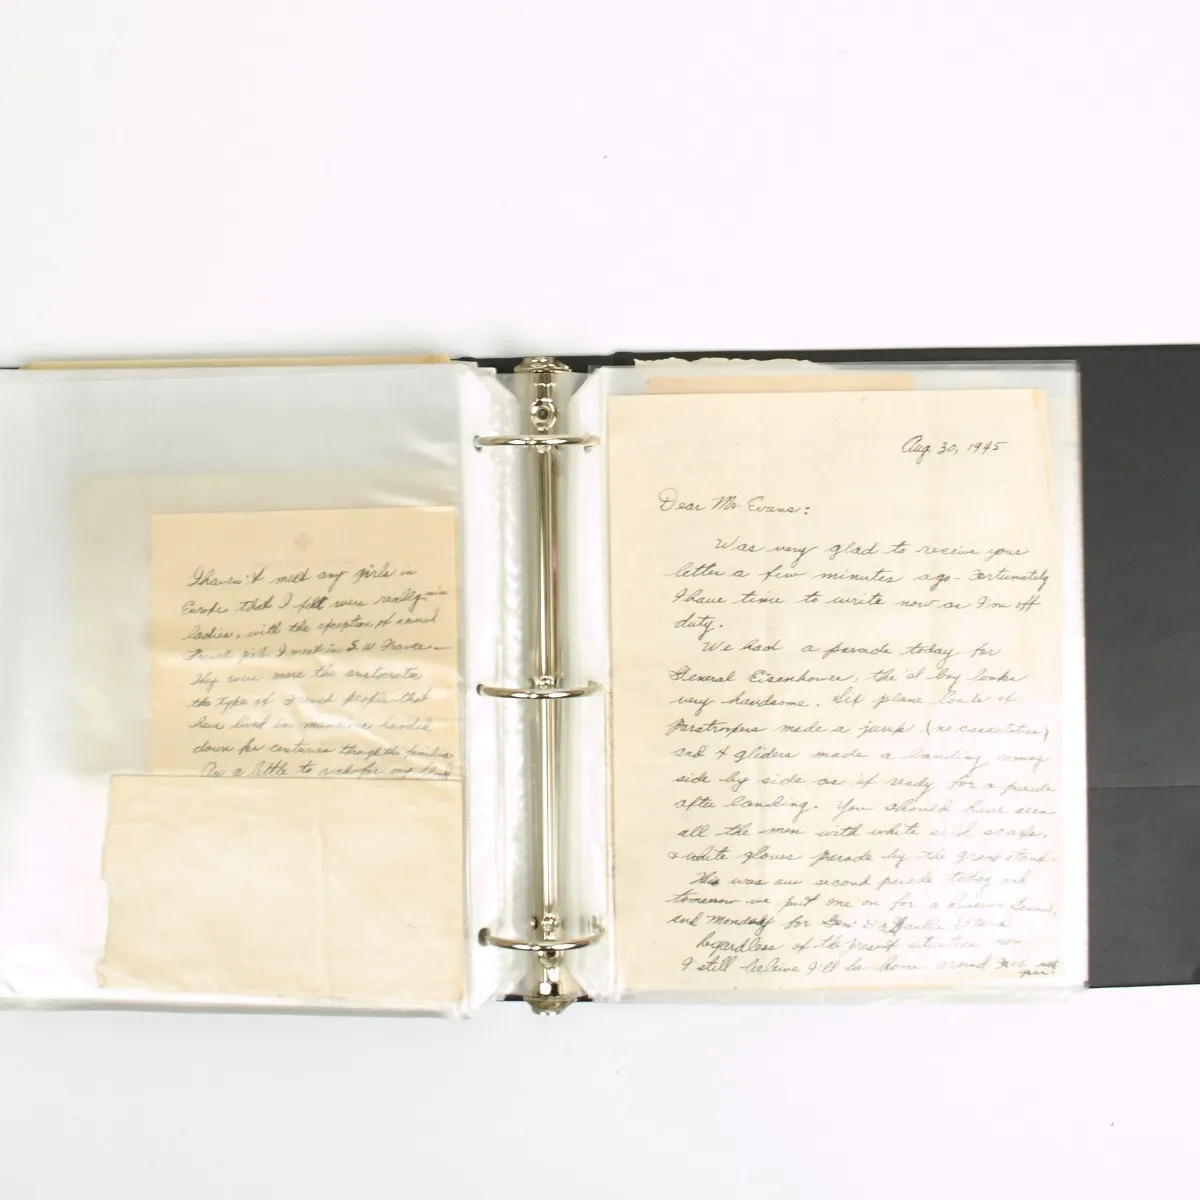 I haven't meet any girls in
Europe that I felt were really
ladies, with the exception of several
French girls I meet in S.W. France —
They were more the aristocratic
the type of French people that
have lived in mansions handed
down for centuries through the families
are a little to rich for my blood
Aug 30, 1945
Dear Mr. Evans:
Was very glad to receive your
letter a few minutes ago - Fortunately
I have time to write now as I'm off
duty.
We had a parade today for
General Eisenhower, the 'ol boy looks
very handsome. Six plane loads of
Paratroopers made a jump (no casualties)
and 4 gliders made a landing coming
side by side as if ready for a parade
after landing. You should have seen
all the men with white silk scarfs,
& white gloves parade by the grand stand.
This was our second parade today and
tomorrow we put one on for a Russian
and Monday for Gen. De Gaulle
Regardless of the present situation now
I still beleive I'll be home around next
year.